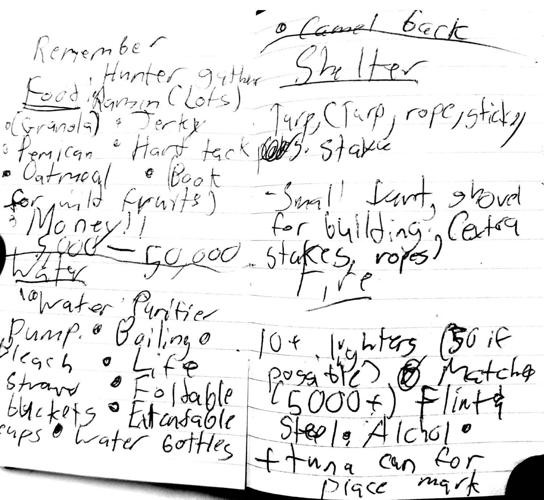 Remember
• Hunter gather
Food: Ramin (Lots)
• (Granola) • Jerky
• Pemican • Hard tack
• Oatmeal • (Book
for wild fruits)
Money!!
5,000 - 50,000
Water
• Water Purifier
Pump • Boiling •
Bleach • Life
straw • Foldable
buckets • Extendable
cups • Water bottles
• Camel back
Shelter
Tarp, (Tarp, rope, sticks,
stake
- Small tent, shovel
for building, (extra
stakes, ropes)
Fire
10+ lighters (50 if
possable) Matches
(5000+) Flint &
Steel • Alchol •
+ tuna can for
place mark